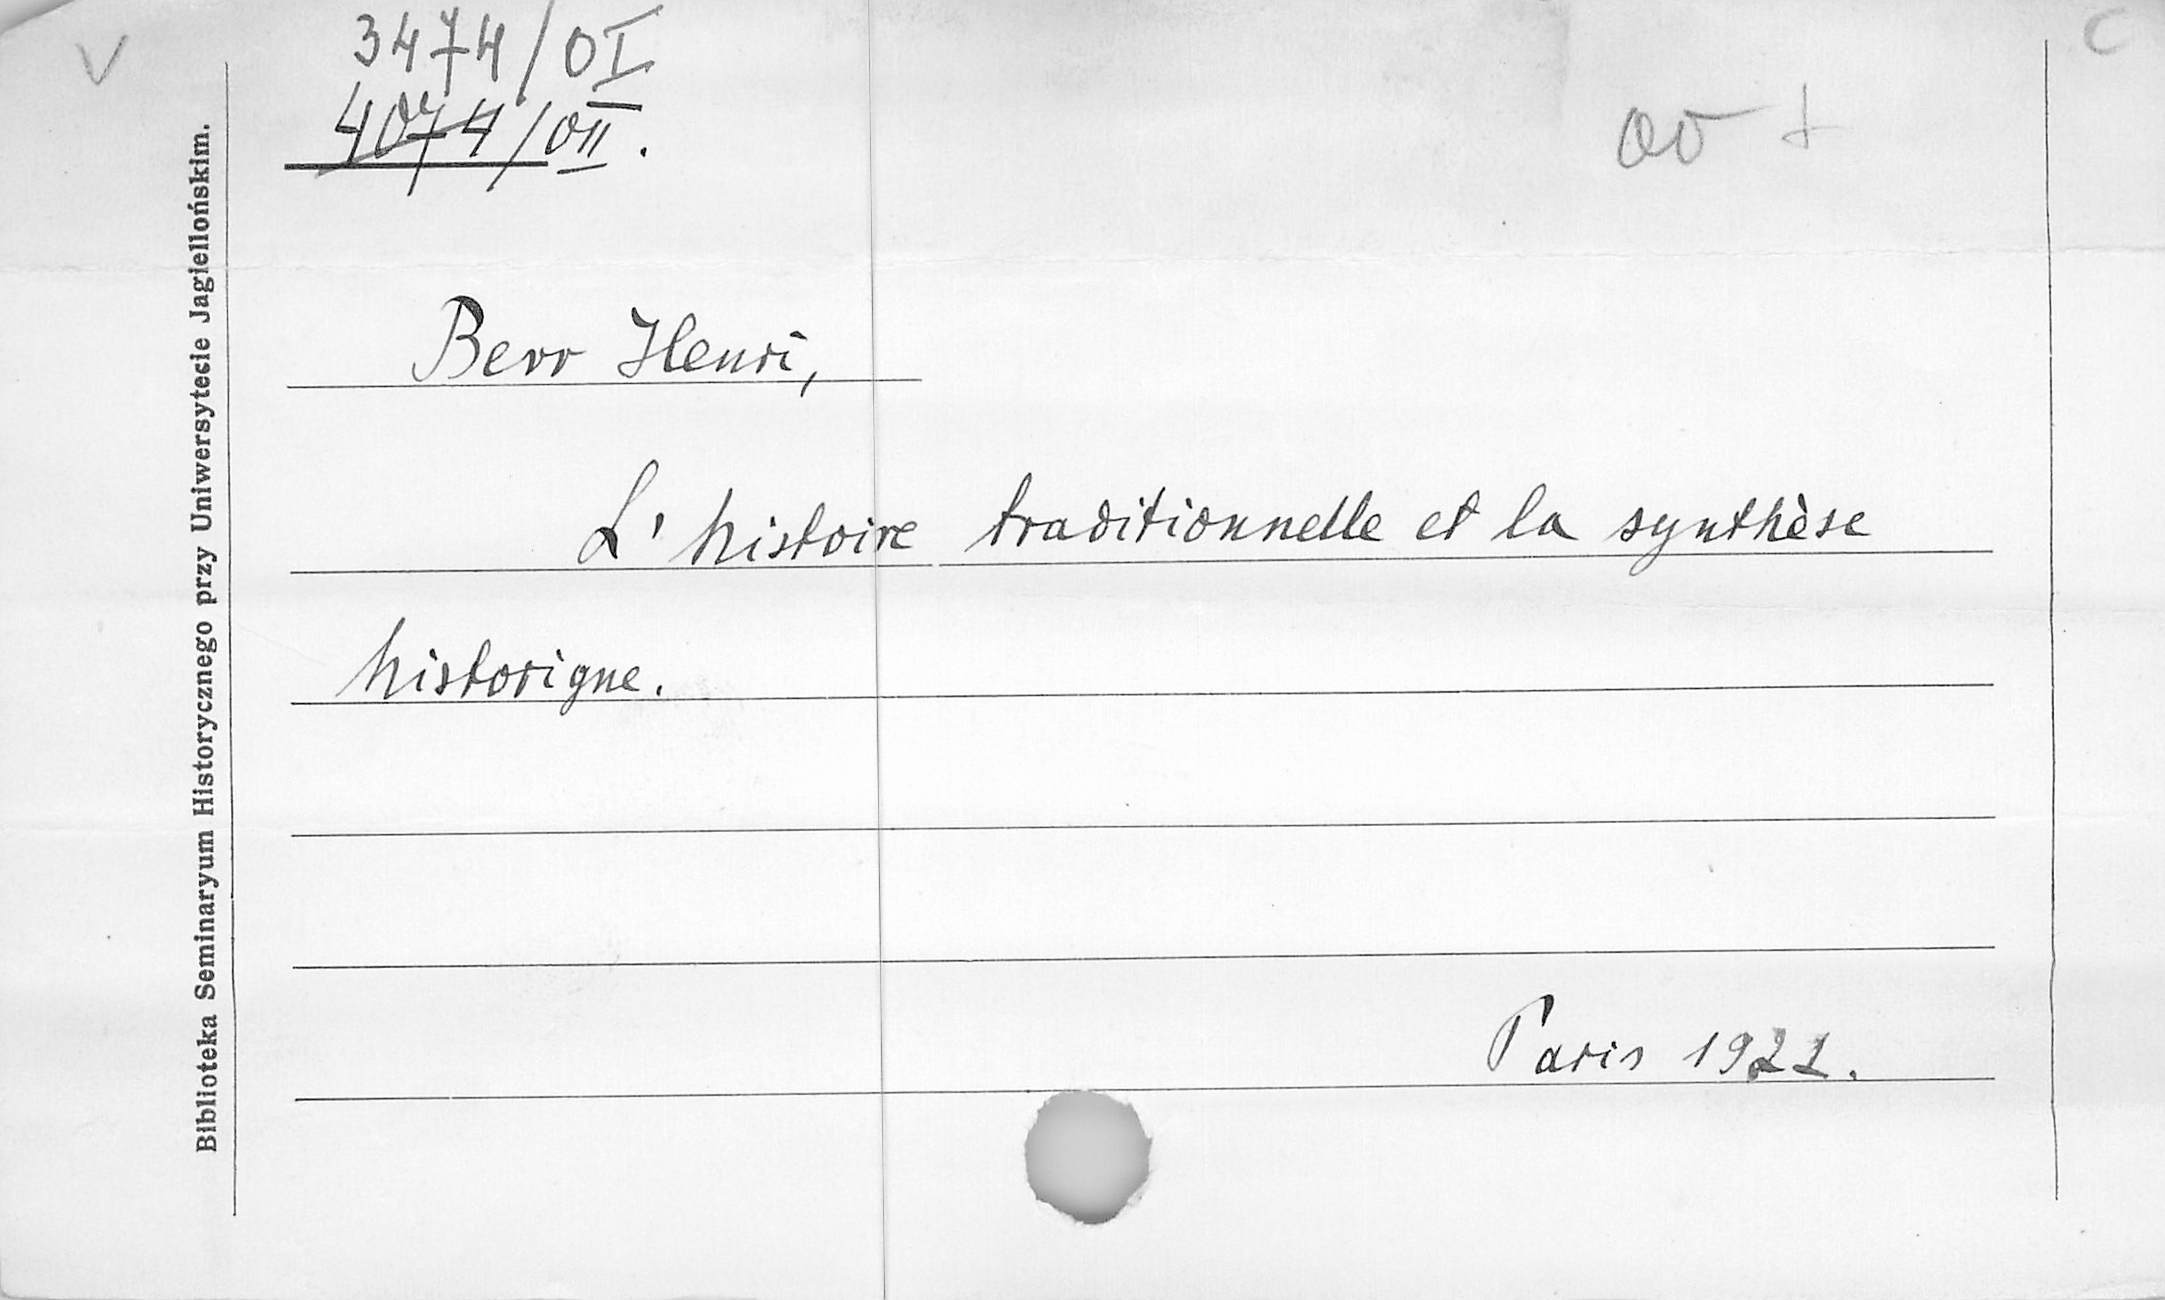 V
3474/OI
C
4074/OII.
Biblioteka Seminaryum Historycznego przy Uniwersytecie Jagiellońskim.
Berr Henri,
L'histoire traditionnelle et la synthèse
historique.
Paris 1921.